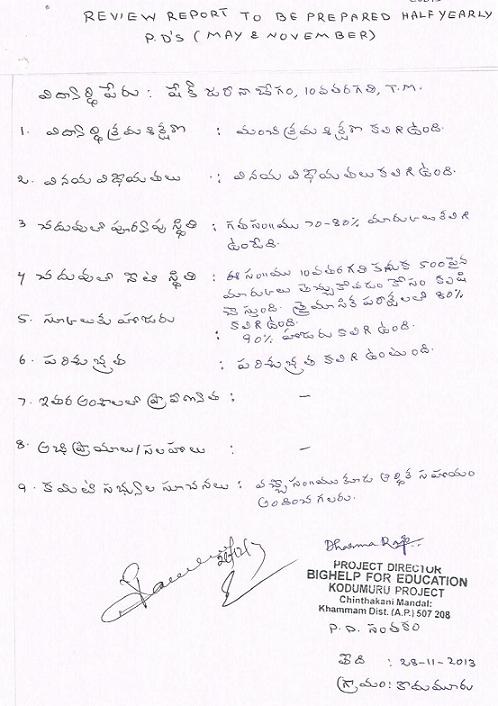 REVIEW REPORT TO BE PREPARED HALF YEARLY
P.D'S (MAY & NOVEMBER)
విద్యార్థి పేరు : షేక్ జురినాబేగం, 10వతరగతి, T.M.
1. విద్యార్థి క్రమశిక్షణ : మంచి క్రమశిక్షణ కలిగి ఉంది.
2. వినయ విధేయతలు : వినయ విధేయతలు కలిగి ఉంది.
3 చదువులో పూర్వపు స్థితి : గత సం॥ము 70-80% మార్కులు కలిగి
ఉండేది.
4 చదువులో నేటి స్థితి : ఈ సం॥ము 10వతరగతి కనుక 500పైన
మార్కులు తెచ్చుకోవడం కోసం కృషి
చేస్తుంది. త్రైమాసిక పరీక్షలలో 80%
కలిగి ఉంది.
5. స్కూలుకు హాజరు : 90% హాజరు కలిగి ఉంది.
6. పరిశుభ్రత : పరిశుభ్రత కలిగి ఉంటుంది.
7. ఇతర అంశాలలో ప్రావీణ్యత : –
8. అభిప్రాయాలు/సలహాలు : –
9. కమిటీ సభ్యుల సూచనలు : వచ్చే సం॥ము కూడా ఆర్థిక సహాయం
అందించగలరు.
PROJECT DIRECTOR
BIGHELP FOR EDUCATION
KODUMURU PROJECT
Chinthakani Mandal:
Khammam Dist. (A.P.) 507 208
P.D. సంతకం
తేది : 28-11-2013
గ్రామం: కొదుమూరు